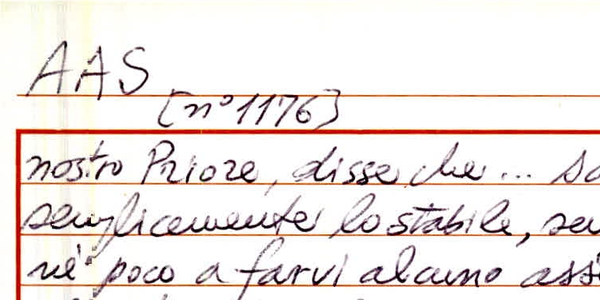 AAS
[n° 1176]
nostro Priore, disse che...
semplicemente lo stabile,
né poco a farvi alcuno